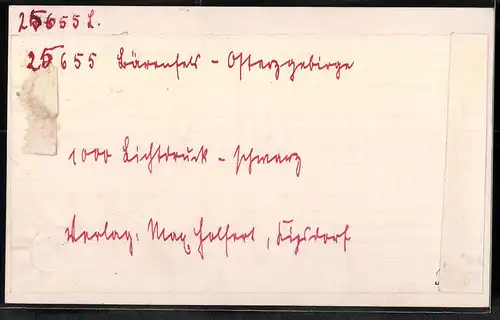 25655 L.
25655 Bärenfels - Osterzgebirge
1000 Lichtdruck - schwarz
Verlag: Max Holfert, Kipsdorf